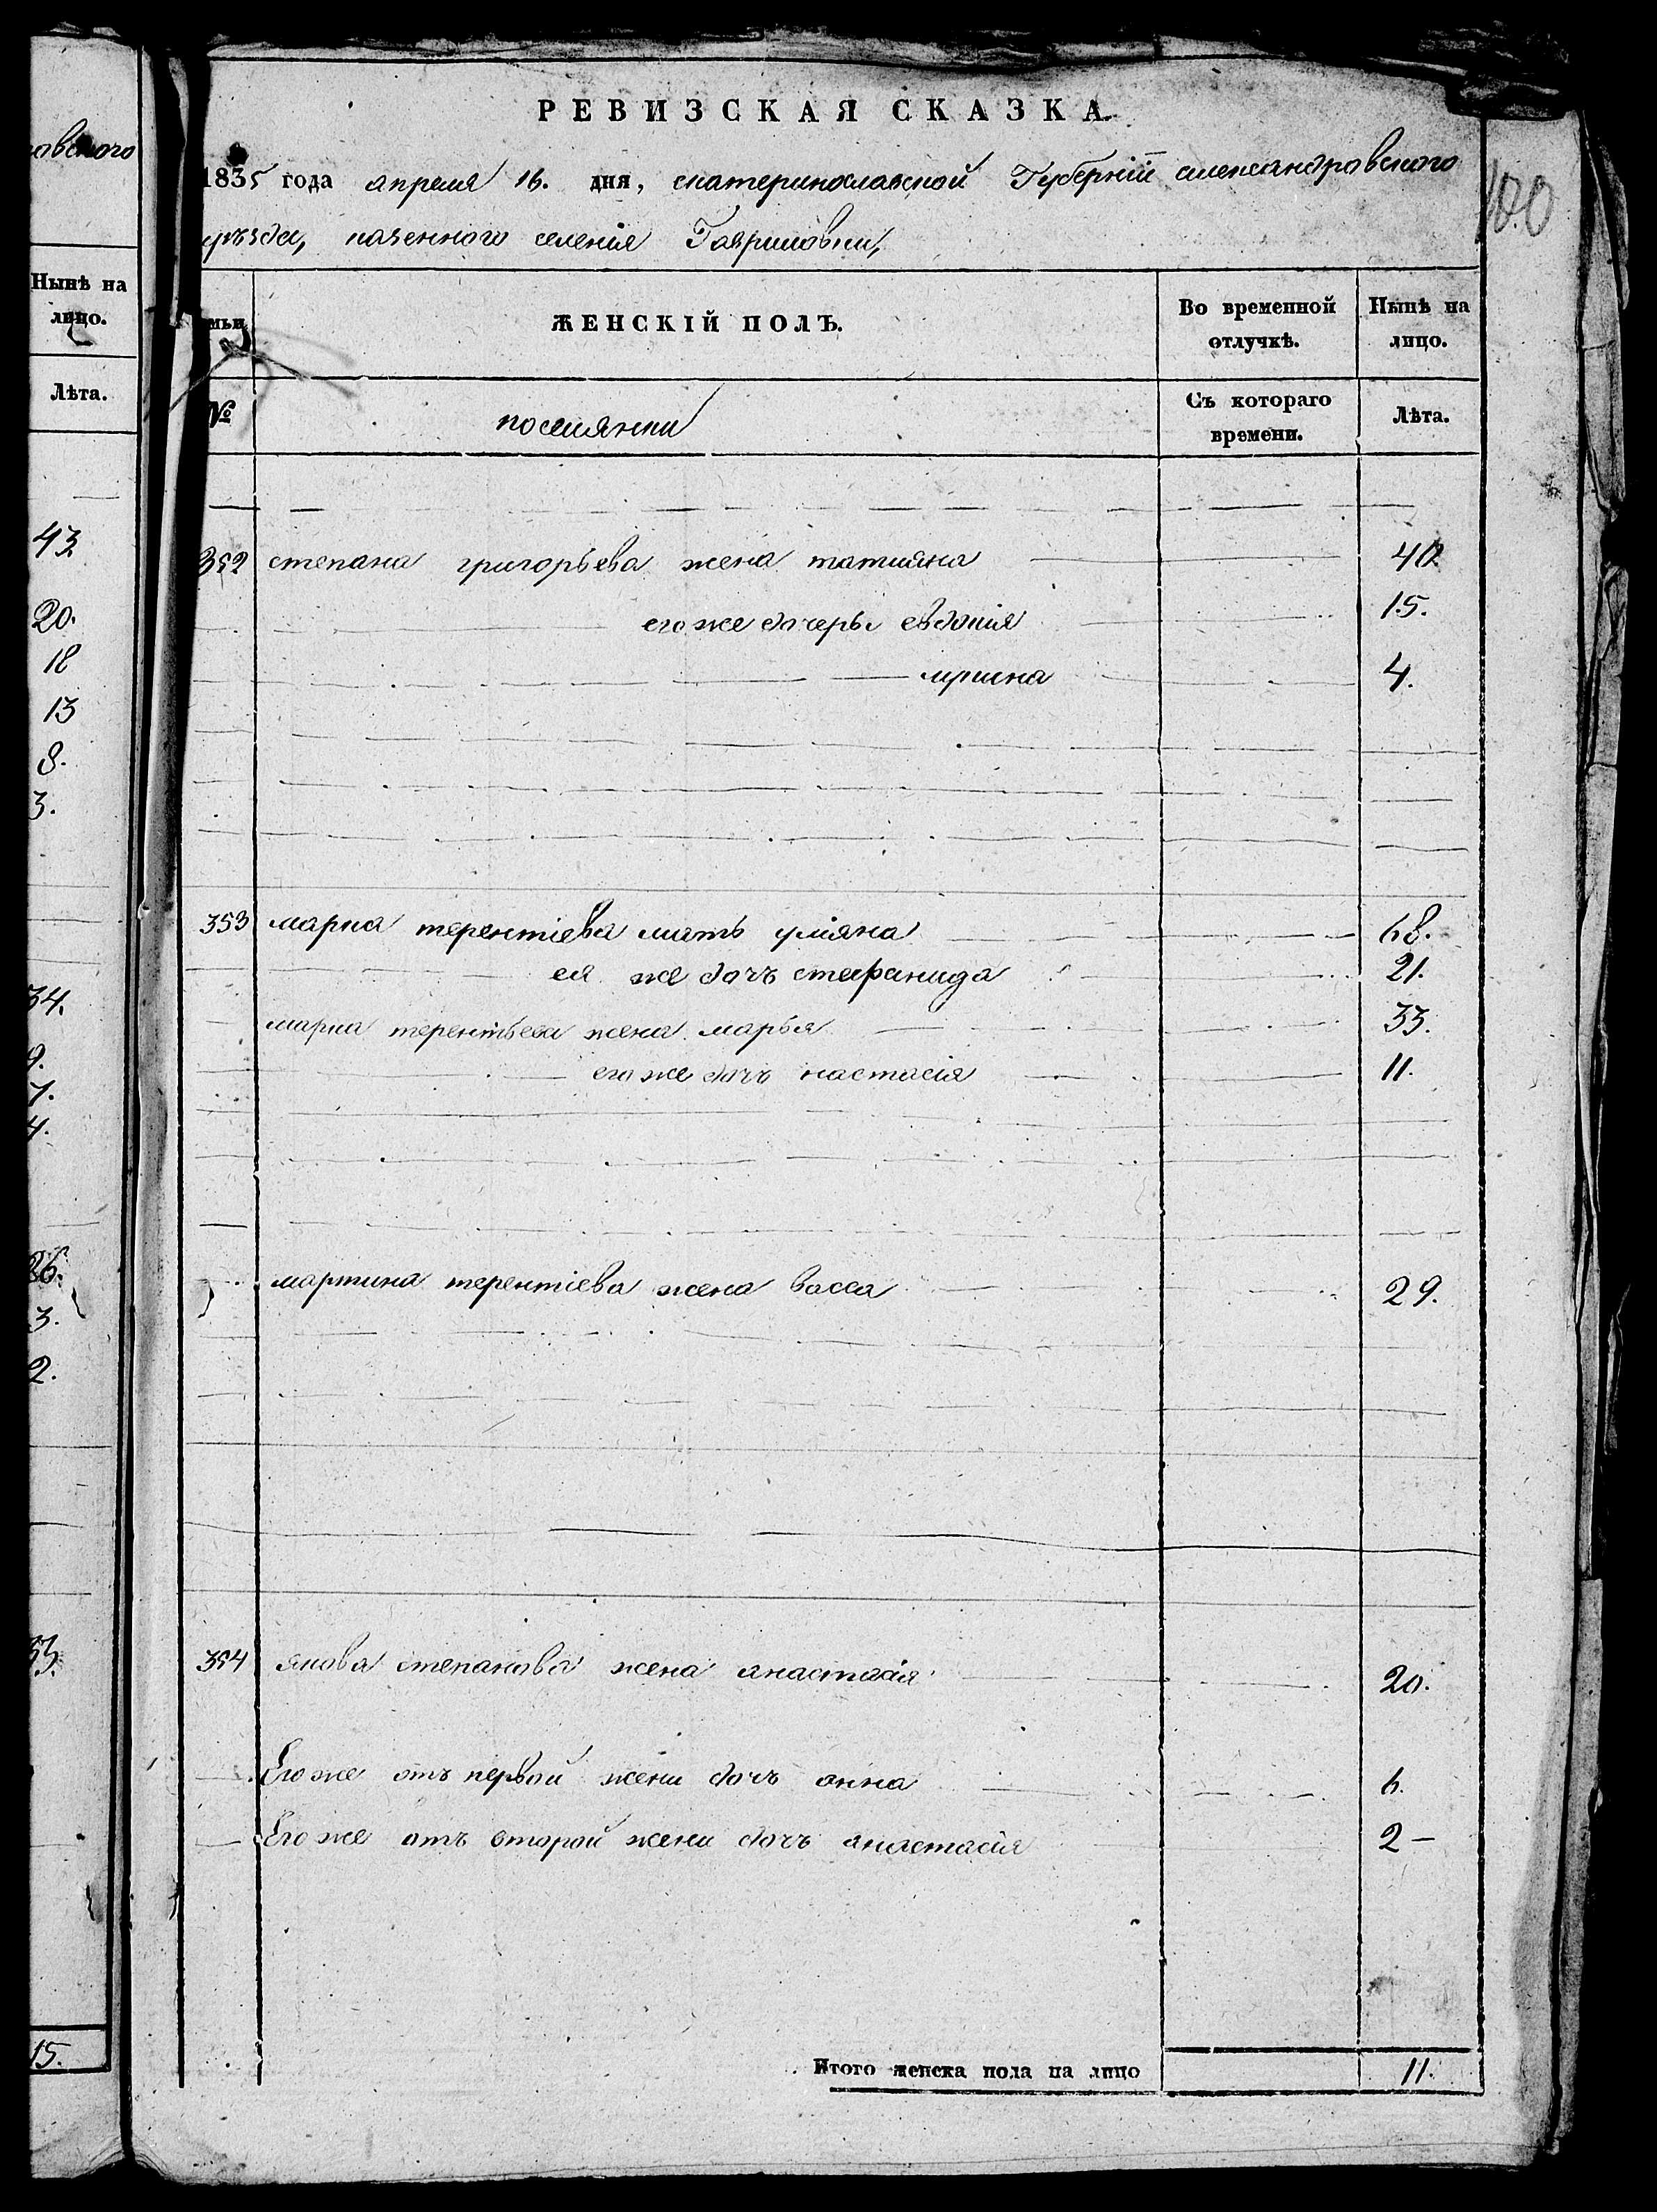 РЕВИЗСКАЯ СКАЗКА.
1835 года апреля 16. дня, екатеринославской Губерніи александровского
уѣзда, казенного селенія Гавриловки,
ЖЕНСКІЙ ПОЛЪ.
Во временной отлучкѣ.
Нынѣ на лицо.
№
поселянки
Съ котораго времени.
Лѣта.
352 степана григорьева жена татияна 40
его же дочери евдокія 15.
ирина 4.
353 марка терентіева мать уліяна 68.
ея же дочь стефанида 21.
марка терентьева жена марья 33.
его же дочъ настасія 11.
мартина терентіева жена васса 29.
354 якова степанова жена анастасія 20.
Его же отъ первой жени дочъ анна 6.
Его же отъ второй жени дочъ анастасія 2
Итого женска пола на лицо 11.
100
авского
Нынѣ на
лицо.
Лѣта.
43
20.
18
13
8.
3.
34.
9.
7.
4.
26.
3.
2.
33.
15.